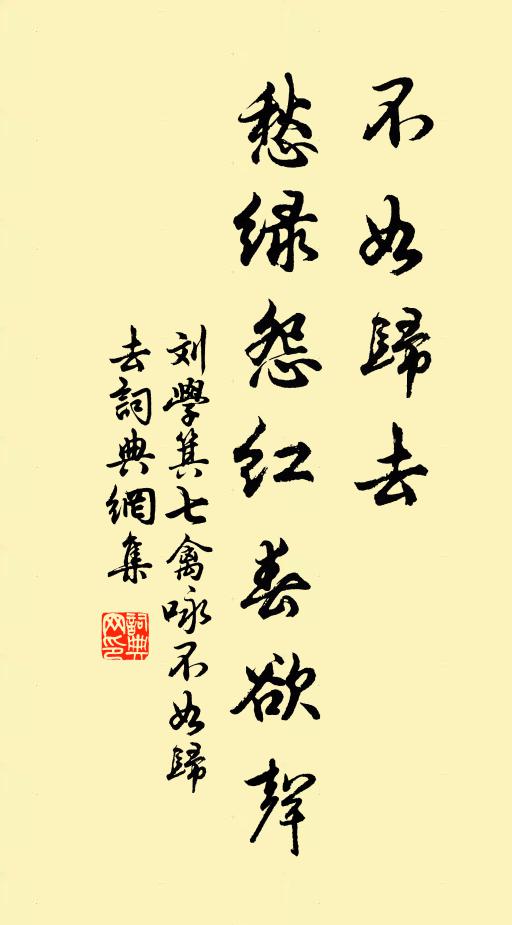 不如歸去
愁緑怨紅春欲聲
刘學箕七禽咏不如歸
去詞典網集
詞典
网印